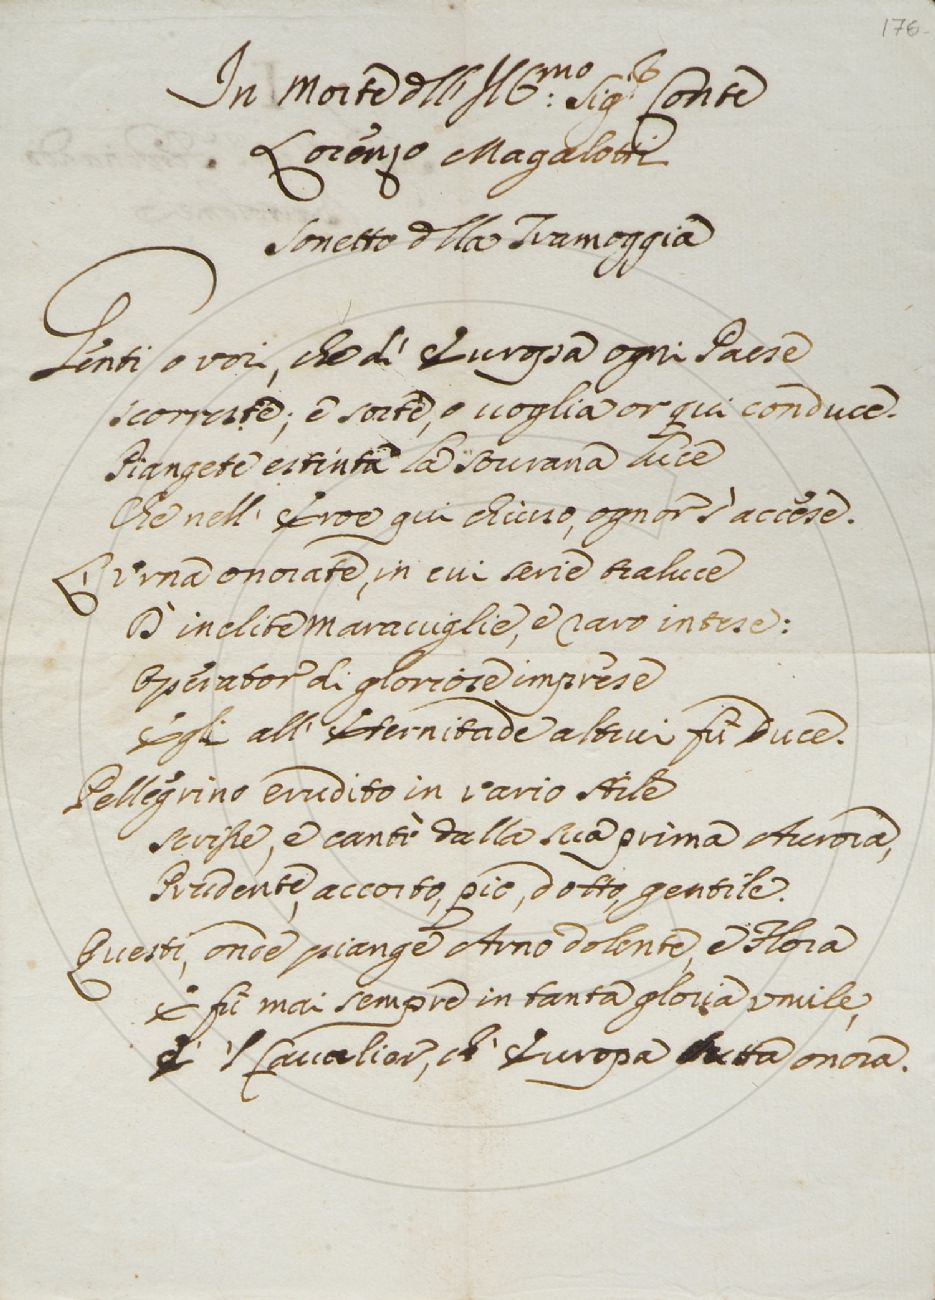 176.
In Morte dell' Ill:mo Sigr. Conte
Lorenzo Magalotti
Sonetto della Tramoggia
Genti o voi, che d' Europa ogni Paese
scorreste; e sorte, o uoglia or qui conduce.
Piangete estinta la sourana luce
Che nell' Eroe qui chiuso, ognor s' accese.
L' Vrna onorate, in cui serie traluce
D' inclite Marauiglie, e raro intese:
Operator di gloriose imprese
Egli all' Eternitade altrui fù Duce.
Pellegrino erudito in vario stile
scrisse, e cantò dalla sua prima Aurora,
Prudente, accorto, pio, dotto, gentile.
Questi, onde piange Arno dolente, e Flora
E fù mai sempre in tanta gloria vmile,
E' 'l Caualier, ch' Europa tutta onora.